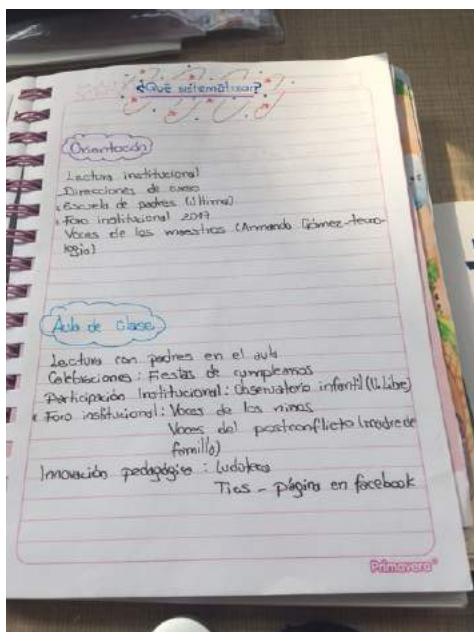 ¿Qué sistematizar?
Orientación
Lectura institucional
Direcciones de curso
Escuela de padres (última)
Foro institucional 2017
Voces de los maestros (Armando Gómez-tecno-
logía)
Aula de clase
Lectura con padres en el aula
Celebraciones: Fiestas de cumpleaños
Participación Institucional: Observatorio infantil (U. Libre)
Foro institucional: Voces de los niños
Voces del postconflicto (madre de
familia)
Innovación pedagógica: Ludoteca
Tics - página en facebook
Primavera